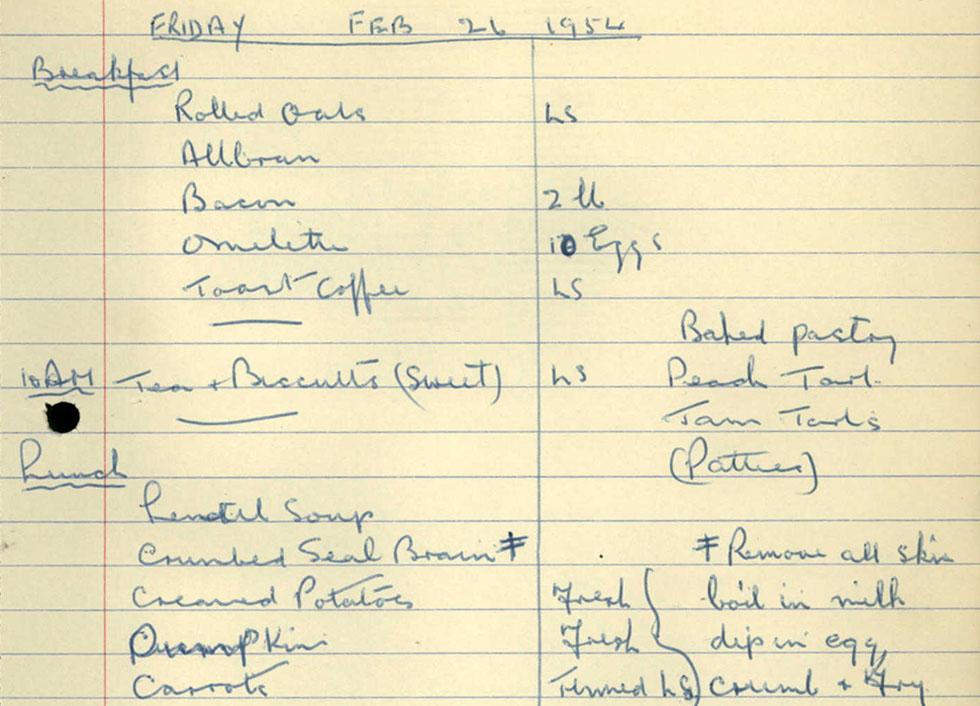 FRIDAY FEB 26 1954
Breakfast
Rolled Oats LS
Allbran
Bacon 2 lb
Omelette 10 Eggs
Toast Coffee LS
Baked pastry
10 AM Tea + Biscuits (Sweet) LS Peach Tart.
Jam Tarts
Lunch (Patties)
Lentil Soup
Crumbed Seal Brain ‡ ‡ Remove all skin
Creamed Potatoes Fresh boil in milk
Pumpkin Fresh dip in egg,
Carrots Tinned LS crumb + Fry